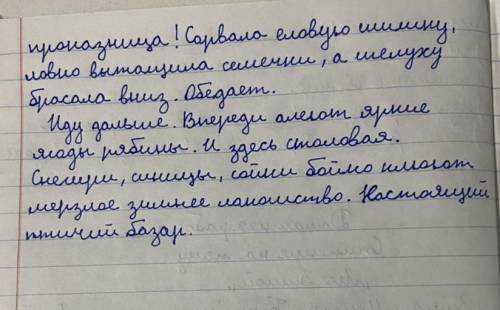 проказница! Сорвала еловую шишку,
ловко вытащила семечки, а шелуху
бросала вниз. Обедает.
Иду дальше. Впереди алеют яркие
ягоды рябины. И здесь столовая.
Снегири, синицы, сойки бойко клюют
мерзлое зимнее лакомство. Настоящий
птичий базар.